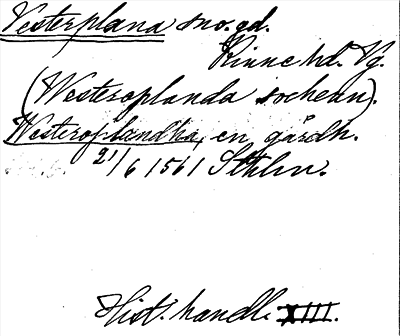 Vesterplana sno. gd.
Kinne hd. Vg.
(Westeroplanda sochenn).
Westeroplandha, en gårdh.
21/6 1561 Sthlm.
Hist. handl. XIII.